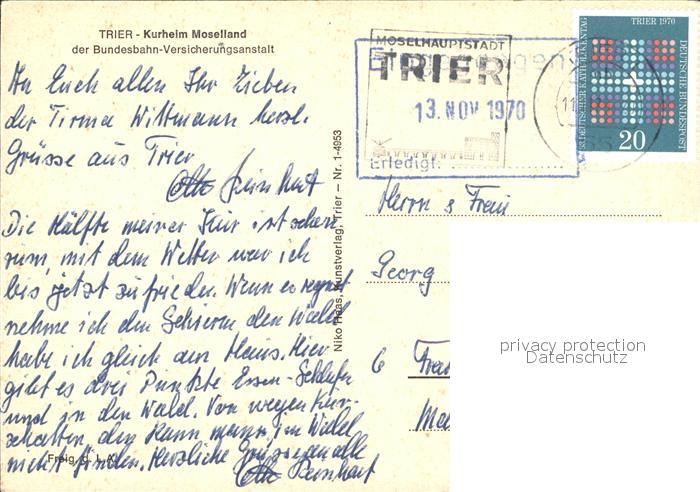 TRIER - Kurheim Moselland
der Bundesbahn-Versicherungsanstalt
An Euch allen Ihr Lieben
der Firma Wittmann herzl.
Grüsse aus Trier
Otto Reinhart
Die Hälfte meiner Kur ist schon
rum, mit dem Wetter war ich
bis jetzt zufrieden. Wenn es regnet
nehme ich den Schirm den Wald
habe ich gleich am Haus. Hier
gibt es drei Punkte Essen-Schlafen
und in den Wald. Von wegen Kur-
schatten, den kann man im Wald
nicht finden. Herzliche Grüsse an alle
Otto Reinhart
Freig. d. L.A.
Niko Haas, Kunstverlag, Trier – Nr. 1-4953
MOSELHAUPTSTADT
TRIER
13. NOV 1970
Erledigt:
83. DEUTSCHER KATHOLIKENTAG
TRIER 1970
DEUTSCHE BUNDESPOST
20
Herrn & Frau
Georg
6
privacy protection
Datenschutz